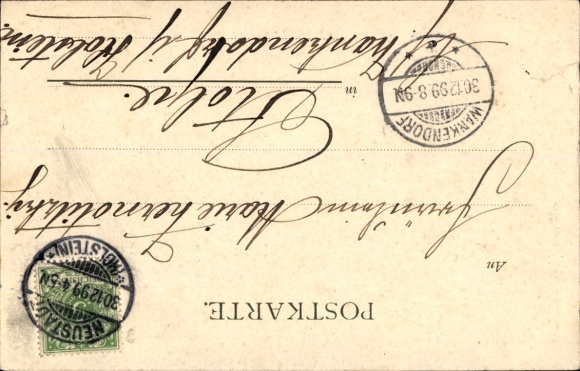 POSTKARTE.
NEUSTADT
(HOLSTEIN)
30.12.99.4-5N
An
Fräulein Marie
in
Stolpe.
Wankendorf i/ Holstein.
WANKENDORF
30.12.99.8-9N